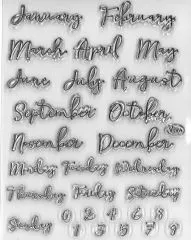 January February
March April May
June July August
September October
November December
Monday Tuesday Wednesday
Thursday Friday Saturday
Sunday 0 1 2 3 4
5 6 7 8 9